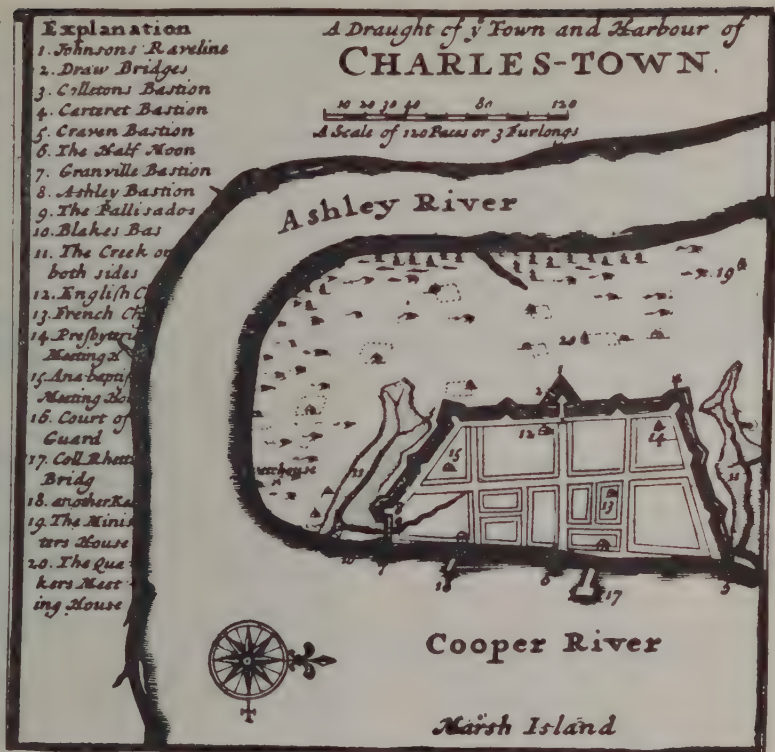 Explanation
1. Johnsons Raveline
2. Draw Bridges
3. Colletons Bastion
4. Carteret Bastion
5. Craven Bastion
6. The Half Moon
7. Granville Bastion
8. Ashley Bastion
9. The Pallisados
10. Blakes Bas
11. The Creek on
both sides
12. English C
13. French Ch
14. Presbyteri
Meeting H
15. Ana-baptis
Meeting Hou
16. Court of
Guard
17. Coll Rhetts
Bridg
18. another
19. The Minis
ters House
20. The Qua
kers Meet
ing House
A Draught of yͤ Town and Harbour of
CHARLES-TOWN.
10 20 30 40 80 120
A Scale of 120 Paces or 3 Furlongs
Ashley River
19
20
2
12
14
15
13
11
11
17
5
Cooper River
Marsh Island